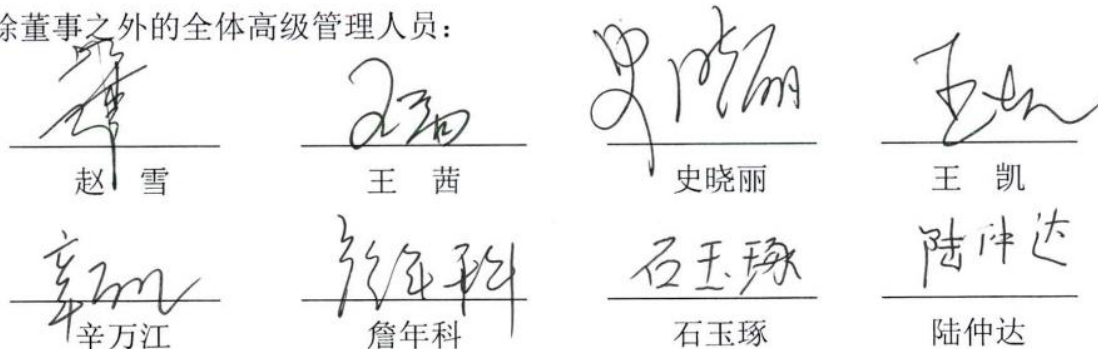 除董事之外的全体高级管理人员：
赵雪 王茜 史晓丽 王凯
石玉琢 陆仲达
辛万江 詹年科 石玉琢 陆仲达